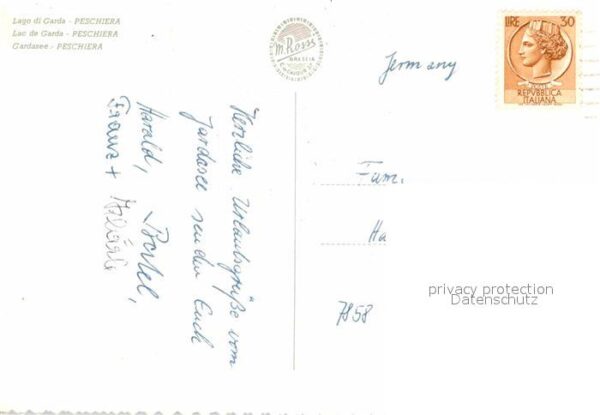 Lago di Garda - PESCHIERA
Lac de Garda - PESCHIERA
Gardasee - PESCHIERA
M. Rossi
BRESCIA
LIRE 30
REPVBBLICA
ITALIANA
Germany
Herzliche Urlaubsgrüße vom
Gardasee senden Euch
Harald,
Franz +
Fam.
Ha
7858
privacy protection
Datenschutz